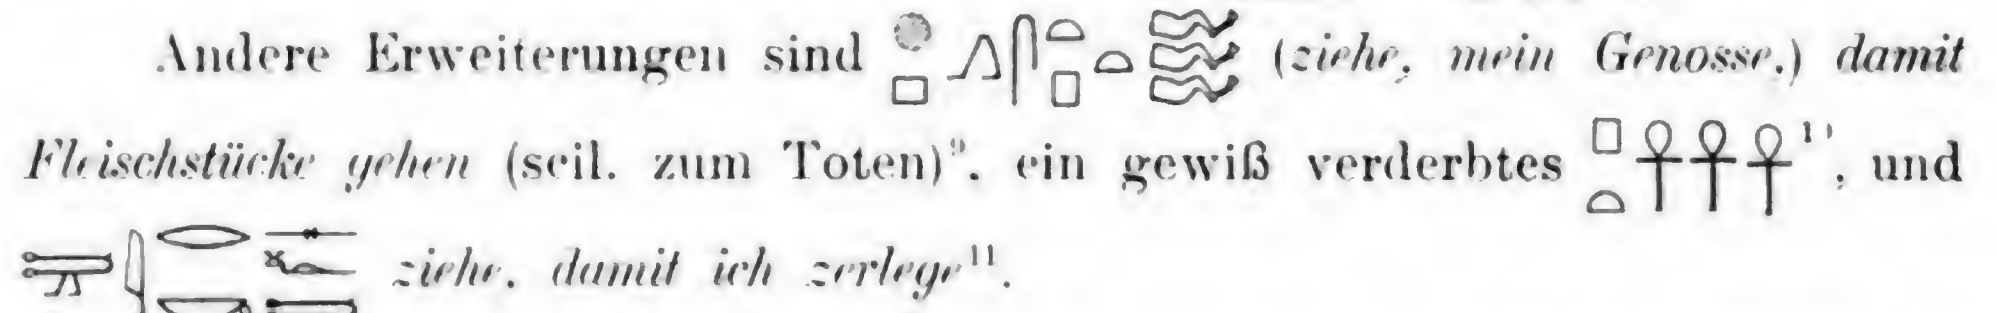 Andere Erweiterungen sind 𓐍𓊪𓂻𓋴𓏏𓊪𓏏 (ziehe, mein Genosse,) damit
Fleischstücke gehen (scil. zum Toten)⁹, ein gewiß verderbtes 𓊪𓏏𓋹𓋹𓋹¹⁰, und
ziehe, damit ich zerlege¹¹.